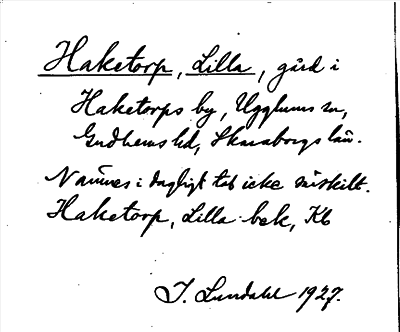 Haketorp, Lilla, gård i
Haketorps by, Ugglums sn,
Gudhems hd, Skaraborgs län.
Nämnes i dagligt tal icke särskilt.
Haketorp, Lilla bek, Kb
I. Lundahl 1927.